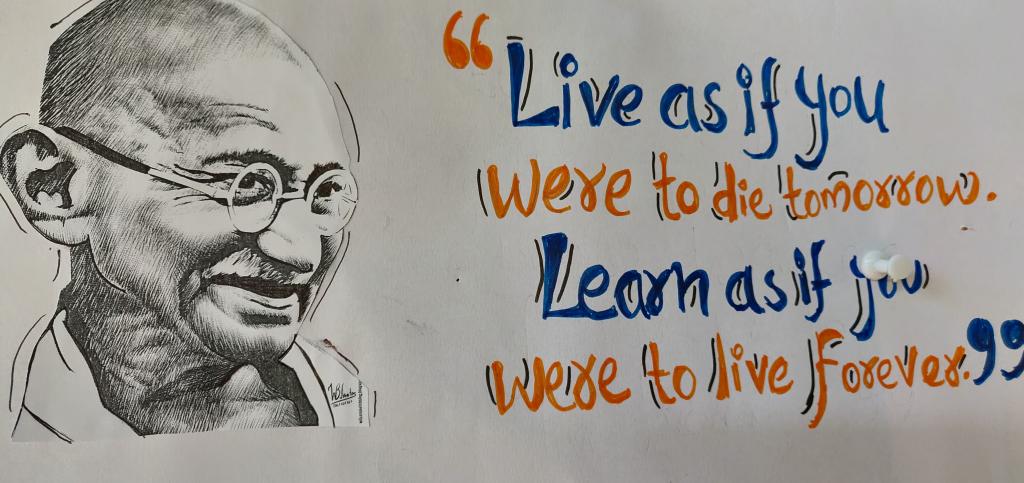 “Live as if you
were to die tomorrow.
Learn as if you
were to live forever.”